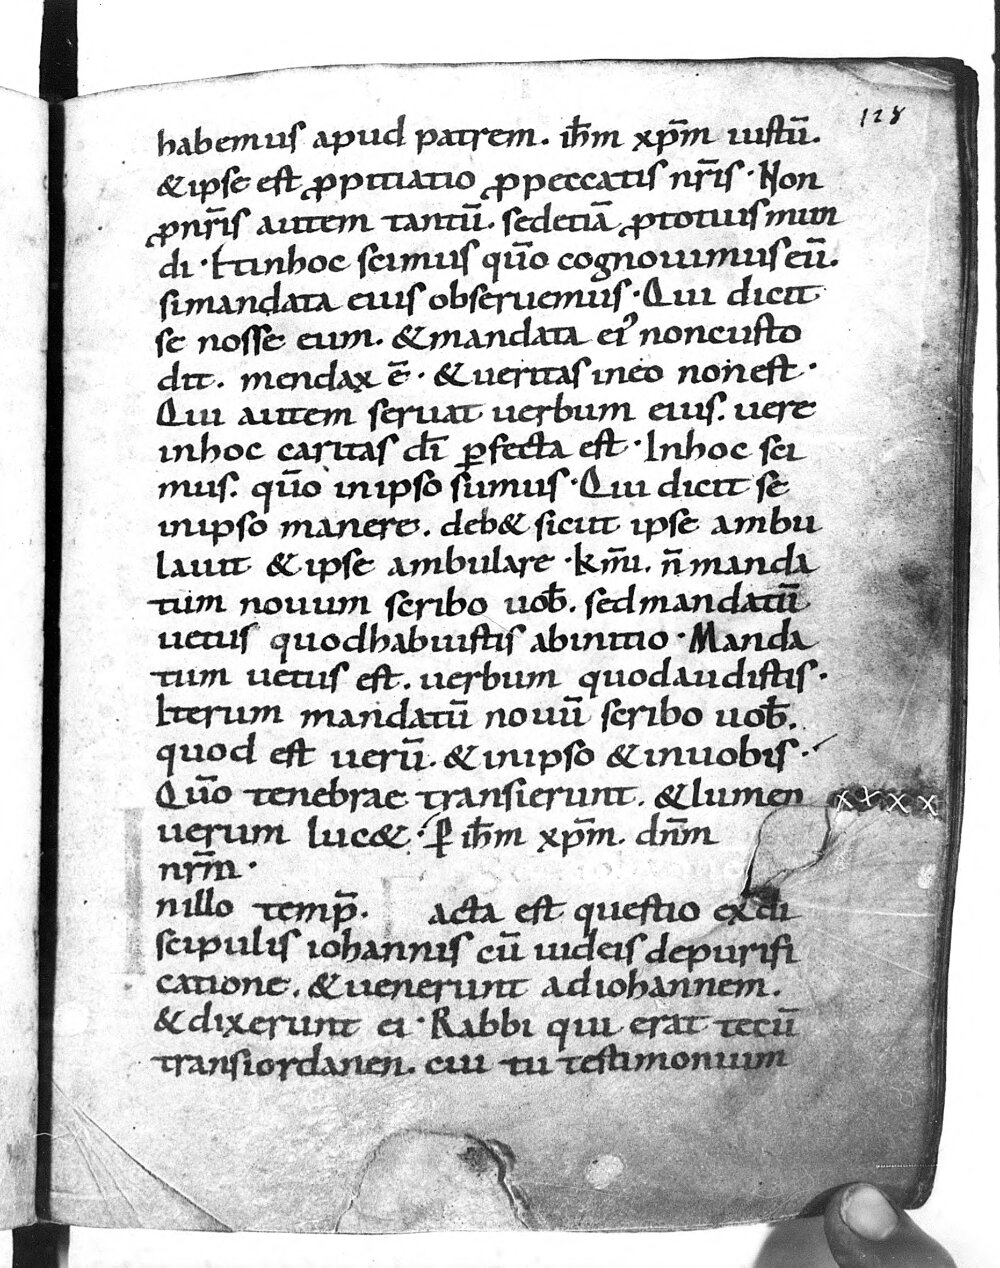 128
habemus apud patrem. ih̅m xp̅m iustū.
& ipse est ꝓpitiatio ꝓpeccatis nr̅is · Non
ꝓnr̅is autem tantū. sedetiā ꝓtotius mun
di · Etinhoc scimus qūo cognouimus eū.
simandata eius obseruemus · Qui dicit
se nosse eum. & mandata ei' noncusto
dit. mendax ē · & ueritas ineo nonest ·
Qui autem seruat uerbum eius. uere
inhoc caritas dī ꝑfecta est · Inhoc sci
mus. qūo inipso sumus · Qui dicit se
inipso manere. deb& sicut ipse ambu
lauit & ipse ambulare · km̅i. n̅ manda
tum nouum scribo uob̅. sedmandatū
uetus quodhabuistis abinitio · Manda
tum uetus est. uerbum quodaudistis ·
Iterum mandatū nouū scribo uob̅.
quod est uerū. & inipso & inuobis ·
Qūo tenebrae transierunt. & lumen
uerum luc& · P̲ ih̅m xp̅m. dn̅m
nr̅m ·
nillo temp̅. acta est questio exdi
scipulis iohannis cū iudeis depurifi
catione. & uenerunt adiohannem.
& dixerunt ei · Rabbi qui erat tecū
transiordanen. cui tu testimonium